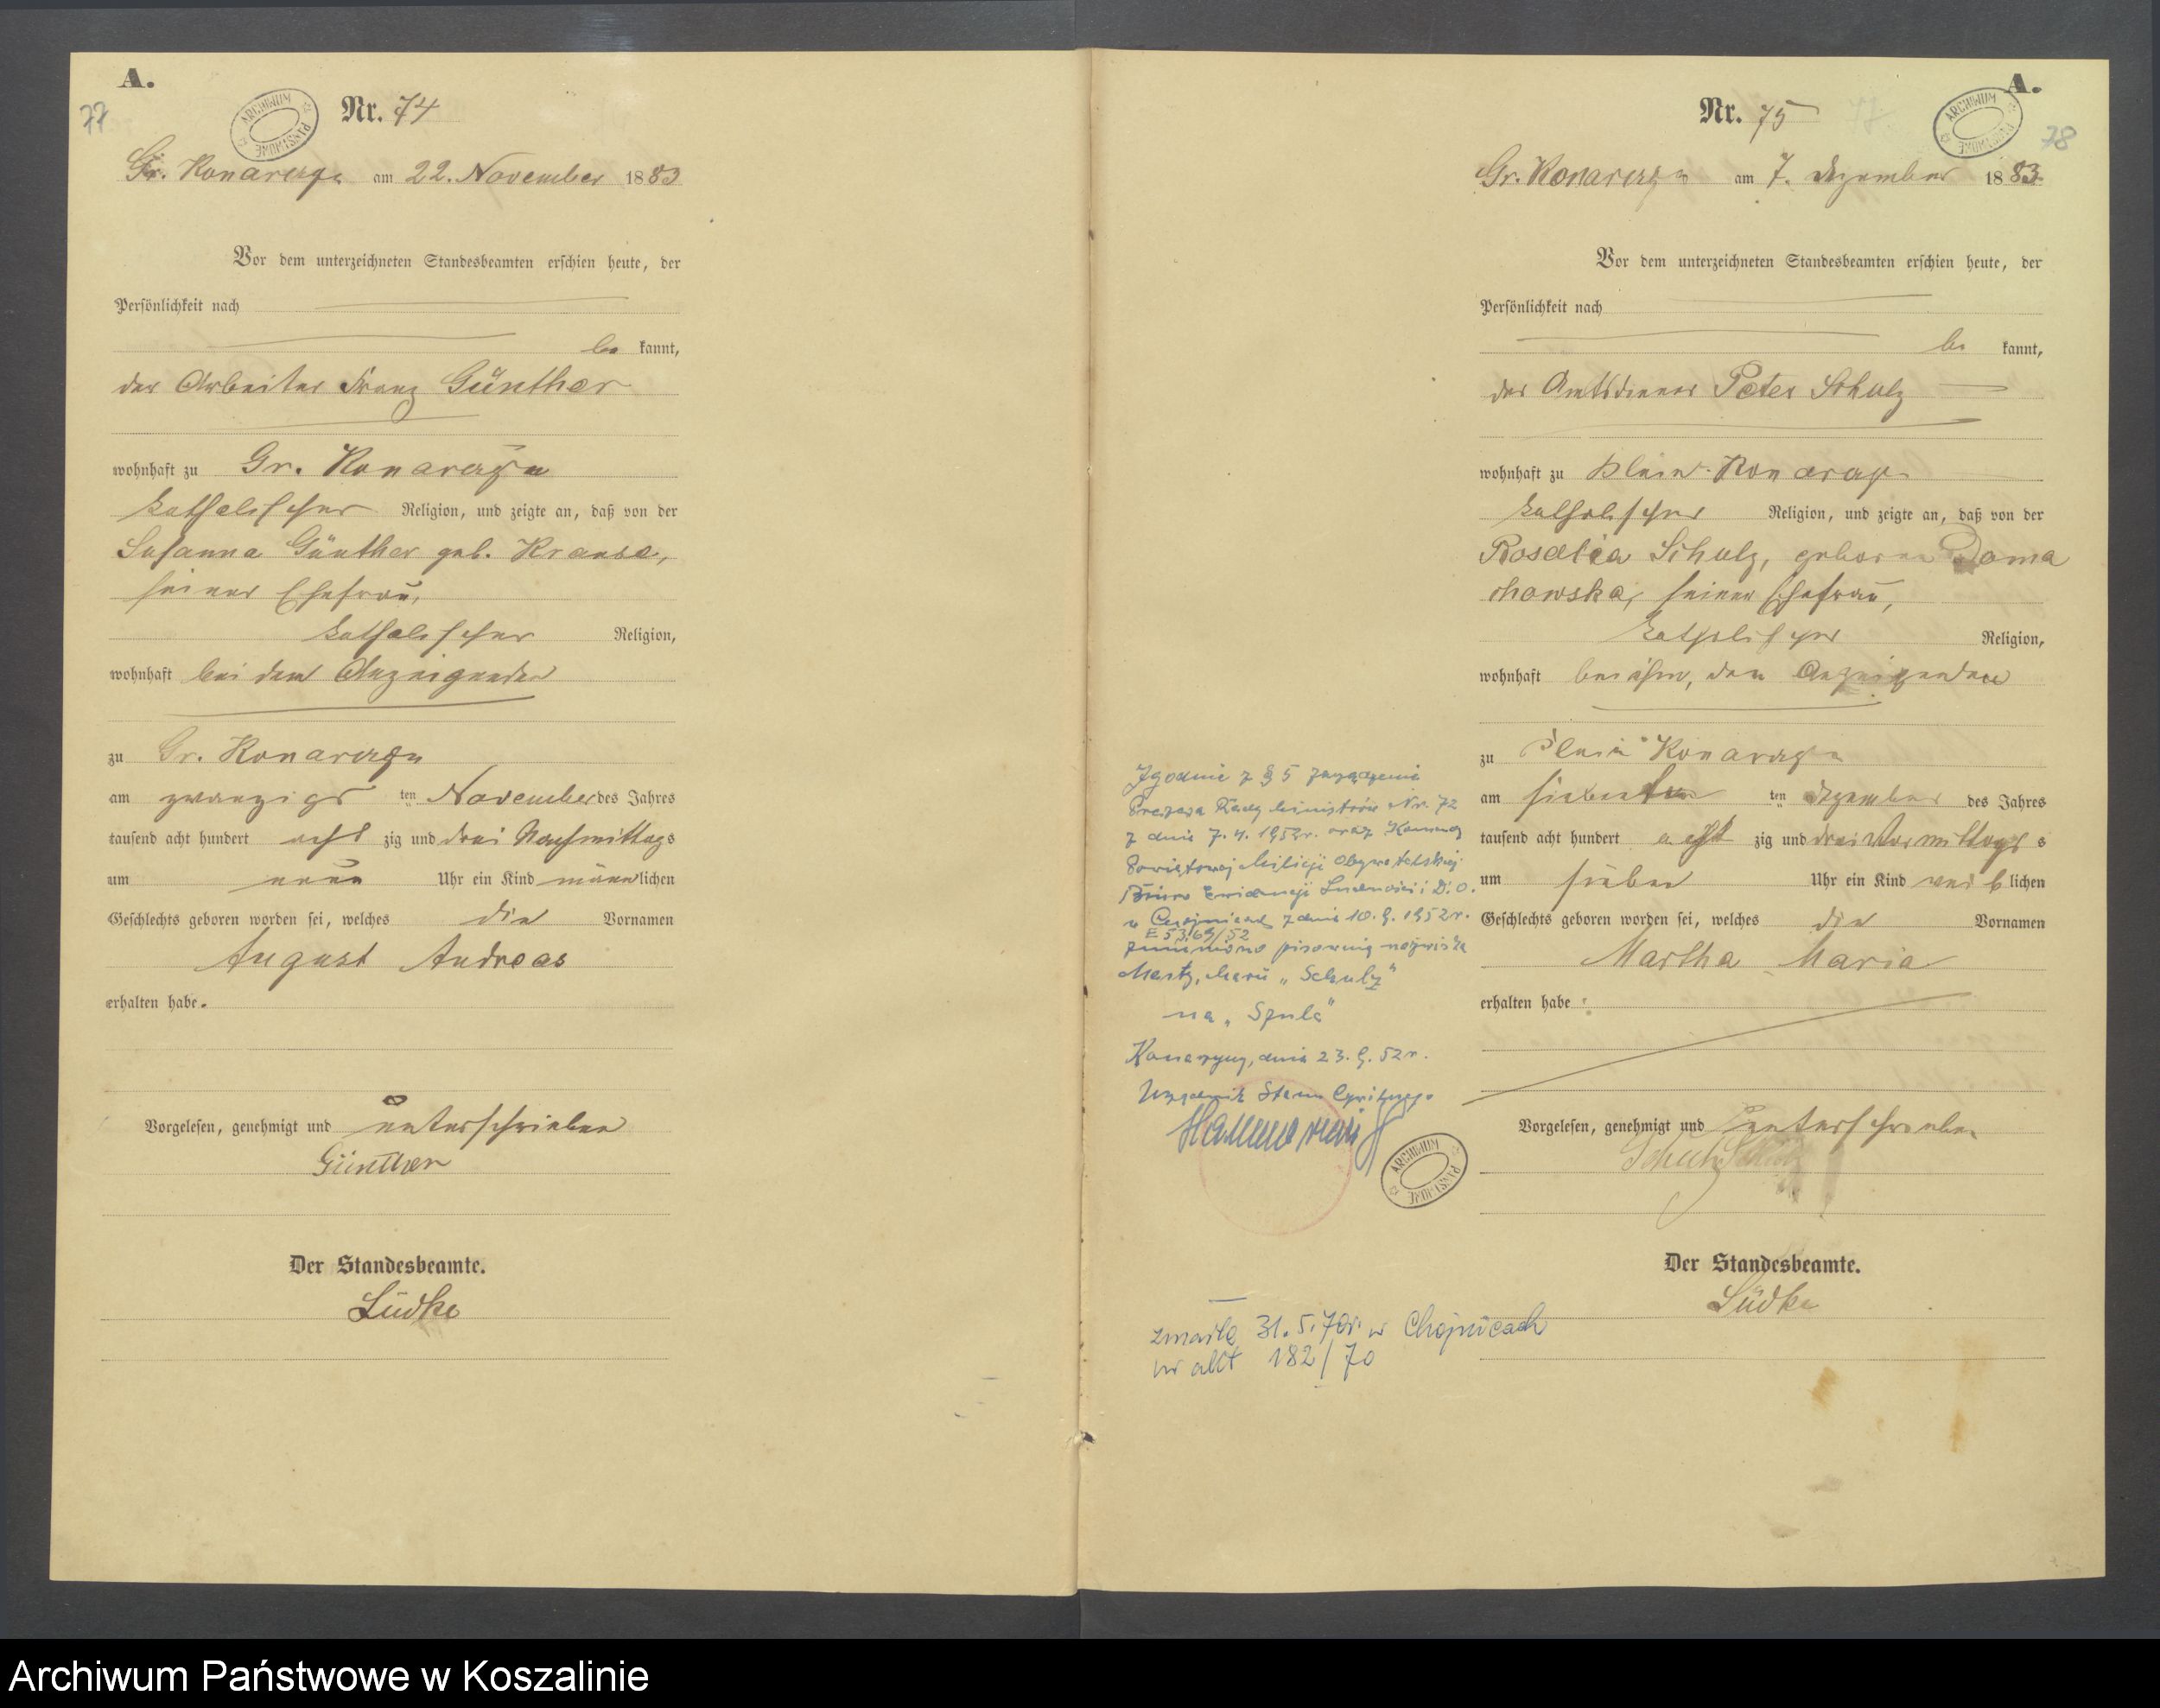 A.
77
ARCHIWUM PAŃSTWOWE
Nr. 74
Gr. Konarczyn am 22. November 1883
Vor dem unterzeichneten Standesbeamten erschien heute, der
Persönlichkeit nach
be kannt,
der Arbeiter Franz Günther
wohnhaft zu Gr. Konarczyn
katholischer Religion, und zeigte an, daß von der
Susanna Günther geb. Krause,
seiner Ehefrau,
katholischer Religion,
wohnhaft bei dem Anzeigenden
zu Gr. Konarczyn
am zwanzigs ten November des Jahres
tausend acht hundert acht zig und drei Nachmittags
um neun Uhr ein Kind männlichen
Geschlechts geboren worden sei, welches die Vornamen
August Andreas
erhalten habe.
Vorgelesen, genehmigt und unterschrieben
Günther
Der Standesbeamte.
Lüdke
A.
78
ARCHIWUM PAŃSTWOWE
Nr. 75
Gr. Konarczyn am 7. Dezember 1883
Vor dem unterzeichneten Standesbeamten erschien heute, der
Persönlichkeit nach
be kannt,
der Amtsdiener Peter Schulz
wohnhaft zu Klein Konarczyn
katholischer Religion, und zeigte an, daß von der
Rosalia Schulz, geborne Doma
chowska, seiner Ehefrau,
katholischer Religion,
wohnhaft bei ihm, dem Anzeigenden
zu Klein Konarczyn
am siebenten ten Dezember des Jahres
tausend acht hundert acht zig und drei Vormittags s
um sieben Uhr ein Kind weib lichen
Geschlechts geboren worden sei, welches die Vornamen
Martha Maria
erhalten habe
Vorgelesen, genehmigt und unterschrieben
Schulz
Der Standesbeamte.
Lüdke
Zgodnie z § 5 zarządzenia
Prezesa Rady Ministrów Nr. 72
z dnia 7. 4. 1952r. oraz
Powiatowej Milicji Obywatelskiej
Biuro Ewidencji Ludności i D.O.
z dnia 10. 9. 1952r.
E 5369/52
zmieniono pisownię nazwiska
Marty, Marii „Schulz"
na „Szulc"
Konarzyny, dnia 23. 9. 52r.
Urzędnik Stanu Cywilnego
ARCHIWUM PAŃSTWOWE
zmarła 31. 5. 70r. w Chojnicach
nr akt 182/70
Archiwum Państwowe w Koszalinie